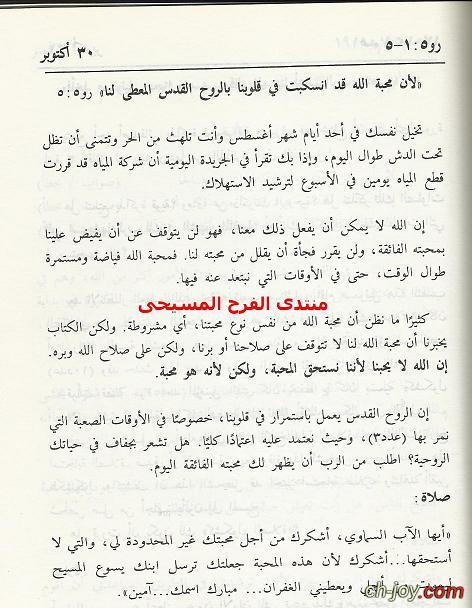 رو٥:١-٥
٣٠ أكتوبر
«لأن محبة الله قد انسكبت في قلوبنا بالروح القدس المعطى لنا» رو٥:٥
تخيل نفسك في أحد أيام شهر أغسطس وأنت تلهث من الحر وتتمنى أن تظل
تحت الدش طوال اليوم، وإذا بك تقرأ في الجريدة اليومية أن شركة المياه قد قررت
قطع المياه يومين في الأسبوع لترشيد الاستهلاك.
إن الله لا يمكن أن يفعل ذلك معنا، فهو لن يتوقف عن أن يفيض علينا
بمحبته الفائقة، ولن يقرر فجأة أن يقلل من محبته لنا. فمحبة الله فياضة ومستمرة
طوال الوقت، حتى في الأوقات التي نبتعد عنه فيها.
منتدى الفرح المسيحى
كثيرًا ما نظن أن محبة الله من نفس نوع محبتنا، أي مشروطة. ولكن الكتاب
يخبرنا أن محبة الله لنا لا تتوقف على صلاحنا أو برنا، ولكن على صلاح الله وبره.
إن الله لا يحبنا لأننا نستحق المحبة، ولكن لأنه هو محبة.
إن الروح القدس يعمل باستمرار في قلوبنا، خصوصًا في الأوقات الصعبة التي
نمر بها (عدد٣)، وحيث نعتمد عليه اعتمادًا كليًا. هل تشعر بجفاف في حياتك
الروحية؟ اطلب من الرب أن يظهر لك محبته الفائقة اليوم.
صلاة:
«أيها الآب السماوي، أشكرك من أجل محبتك غير المحدودة لي، والتي لا
أستحقها...أشكرك لأن هذه المحبة جعلتك ترسل ابنك يسوع المسيح
ويعطيني الغفران... مبارك اسمك...آمين».
ch-joy.com